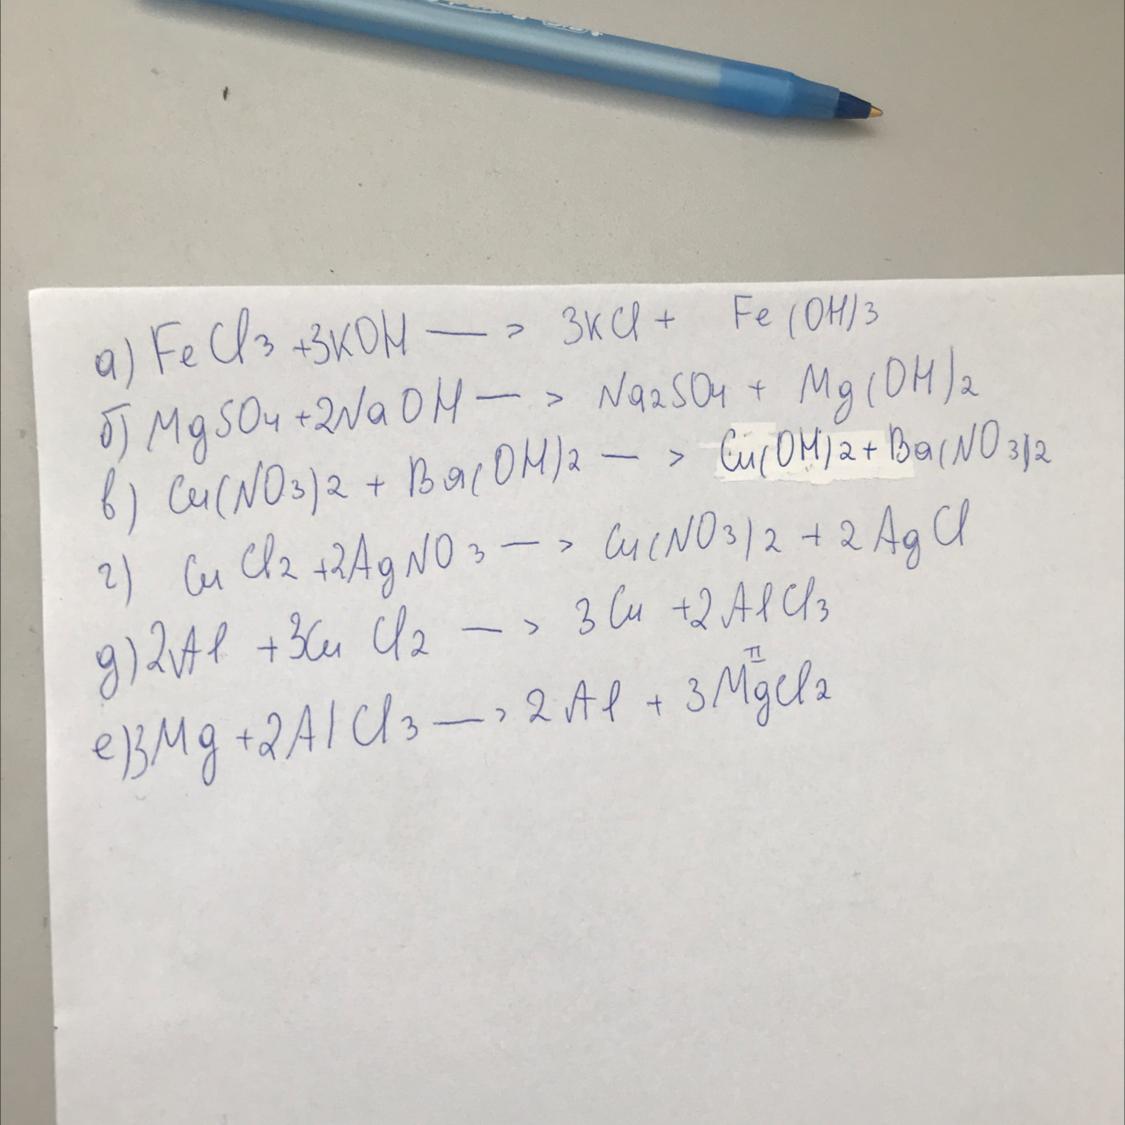 а) FeCl3 +3KOH —> 3KCl + Fe(OH)3
б) MgSO4 +2NaOH —> Na2SO4 + Mg(OH)2
в) Cu(NO3)2 + Ba(OH)2 —> Cu(OH)2 + Ba(NO3)2
г) CuCl2 +2AgNO3 —> Cu(NO3)2 + 2AgCl
д) 2Al +3CuCl2 —> 3Cu +2AlCl3
II
е) 3Mg +2AlCl3 —> 2Al + 3MgCl2